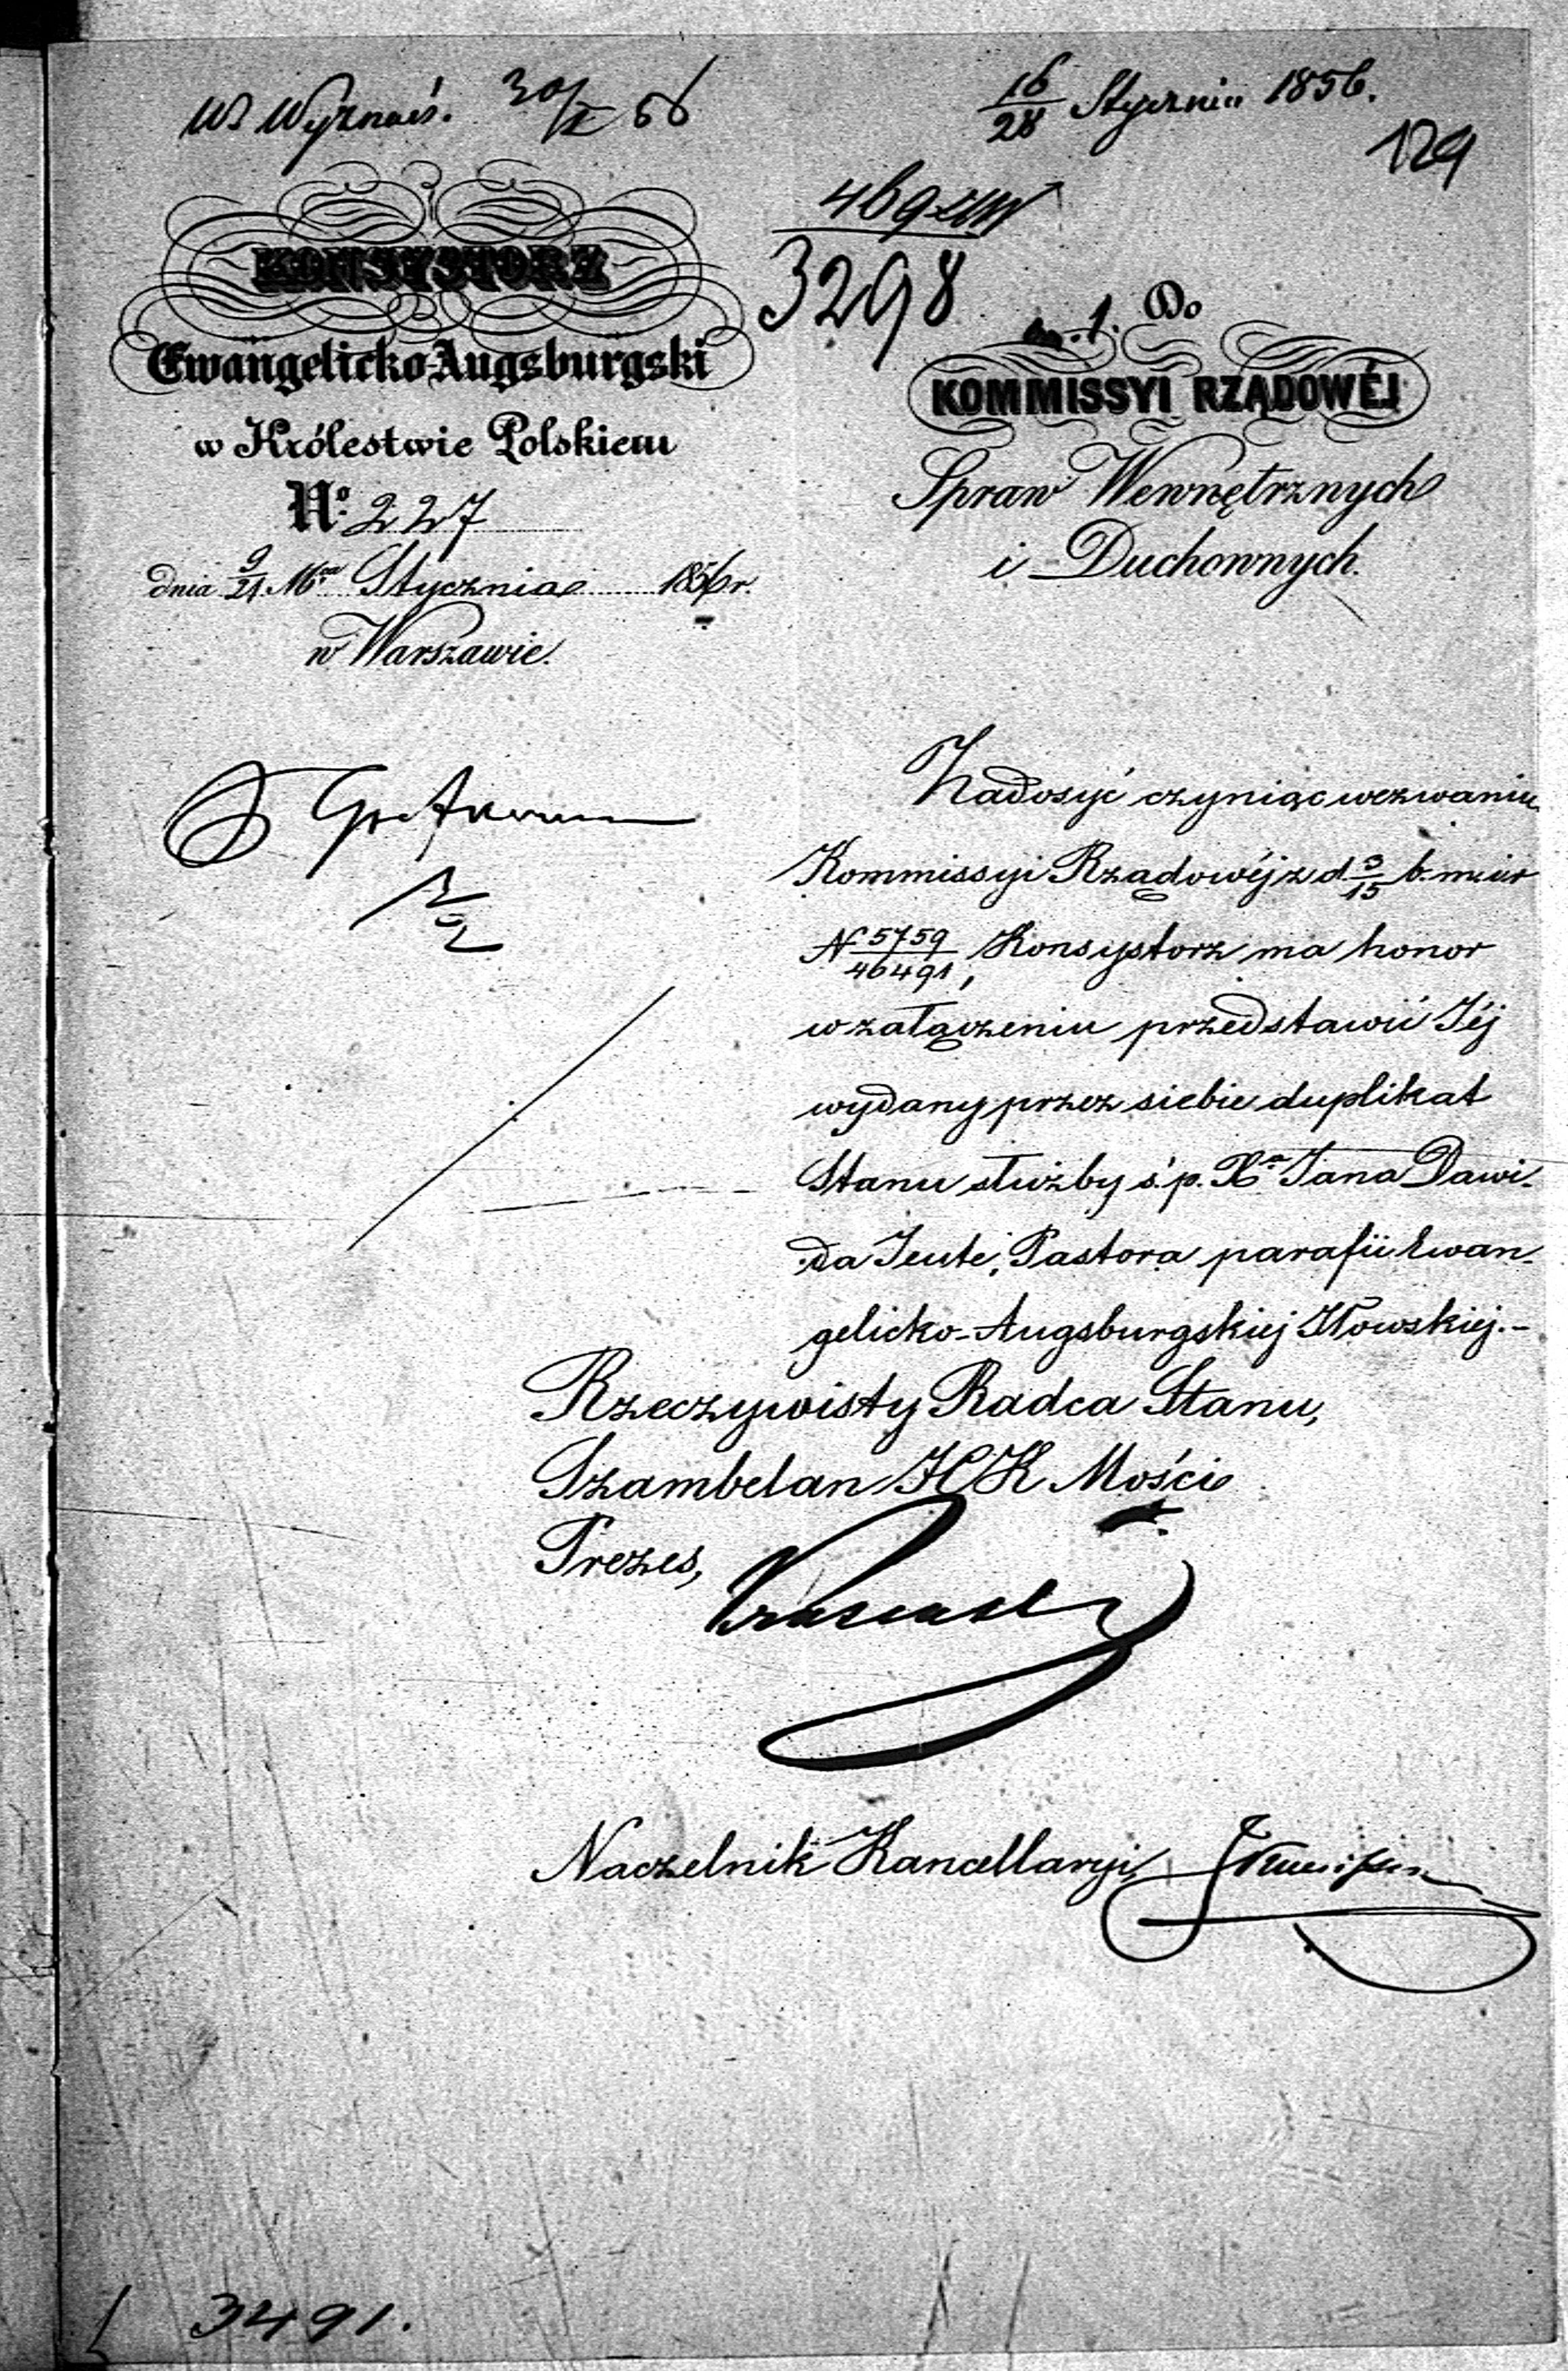 W Wyznań. 30/I 56
16/28 Stycznia 1856.
129
469
3298
KONSYSTORZ
Ewangelicko-Augsburgski
w Królestwie Polskiem
No. 227
dnia 9/21 Mca Stycznia 1856 r.
w Warszawie.
Do
KOMMISSYI RZĄDOWÉJ
Spraw Wewnętrznych
i Duchownych.
Zadosyć czyniąc wezwaniu
Kommissyi Rządowéj z d 3/15 b. m. i r
N 5759/46491, Konsystorz ma honor
w załączeniu przedstawić Jéj
wydany przez siebie duplikat
Stanu służby ś. p. Xa Jana Dawi-
da Teute, Pastora parafii Ewan-
gelicko-Augsburgskiej Iłowskiej.-
Rzeczywisty Radca Stanu,
Szambelan JCK Mości
Prezes,
Naczelnik Kancellaryi,
3491.